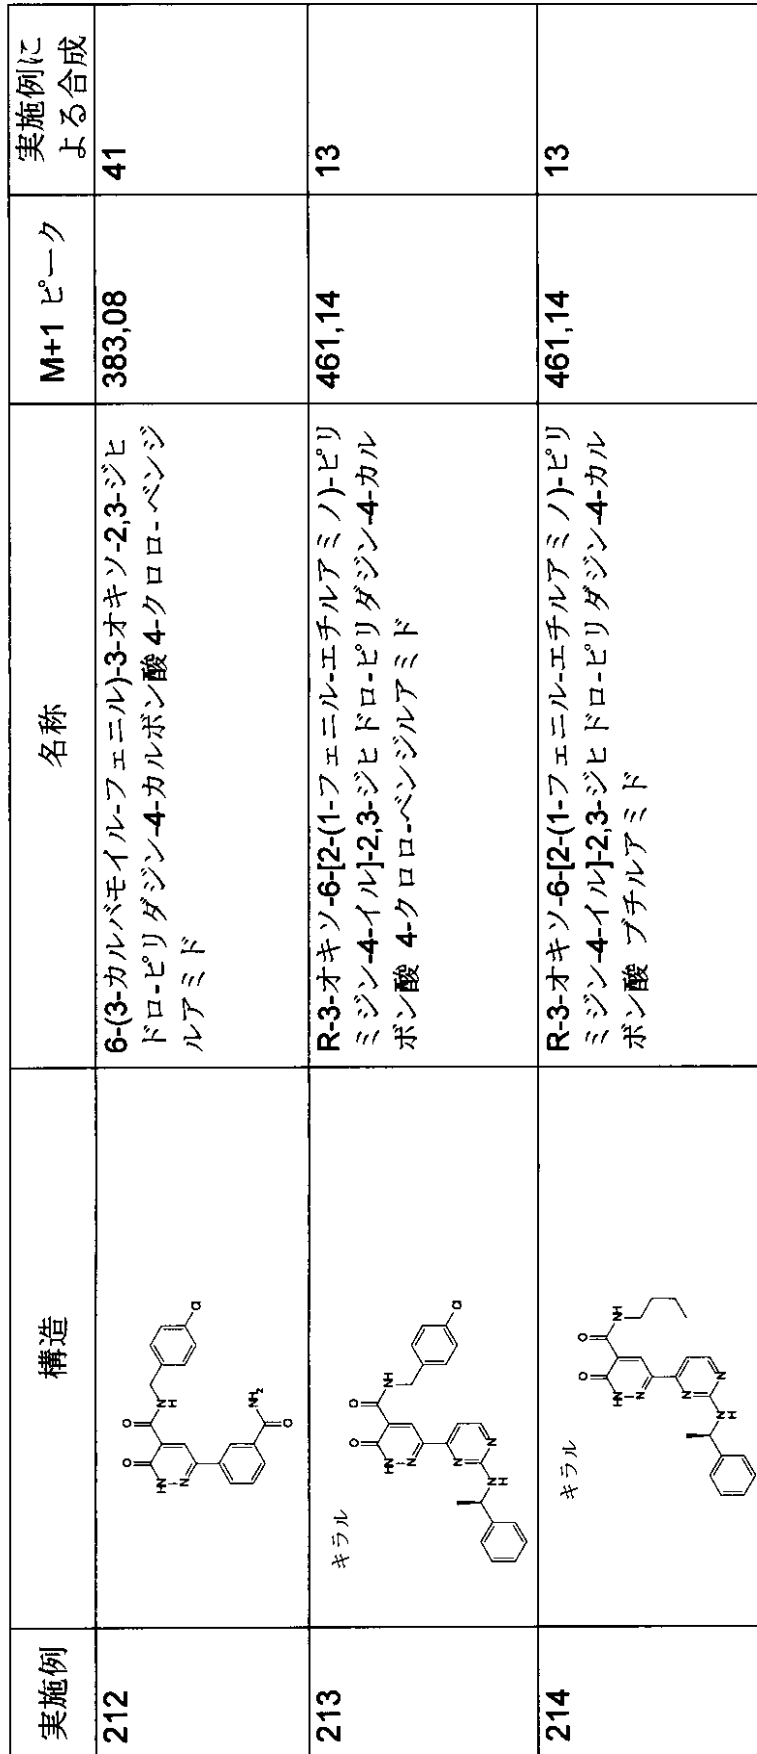 実施例
構造
名称
M+1 ピーク
実施例に
よる合成
212
O
O
NH
N
N
H
Cl
NH₂
O
6-(3-カルバモイル-フェニル)-3-オキソ-2,3-ジヒ
ドロ-ピリダジン-4-カルボン酸 4-クロロ-ベンジ
ルアミド
383,08
41
213
キラル
O
O
NH
NH
N
Cl
N
N
N
H
R-3-オキソ-6-[2-(1-フェニル-エチルアミノ)-ピリ
ミジン-4-イル]-2,3-ジヒドロ-ピリダジン-4-カル
ボン酸 4-クロロ-ベンジルアミド
461,14
13
214
キラル
O
O
NH
NH
N
N
N
N
H
R-3-オキソ-6-[2-(1-フェニル-エチルアミノ)-ピリ
ミジン-4-イル]-2,3-ジヒドロ-ピリダジン-4-カル
ボン酸 ブチルアミド
461,14
13